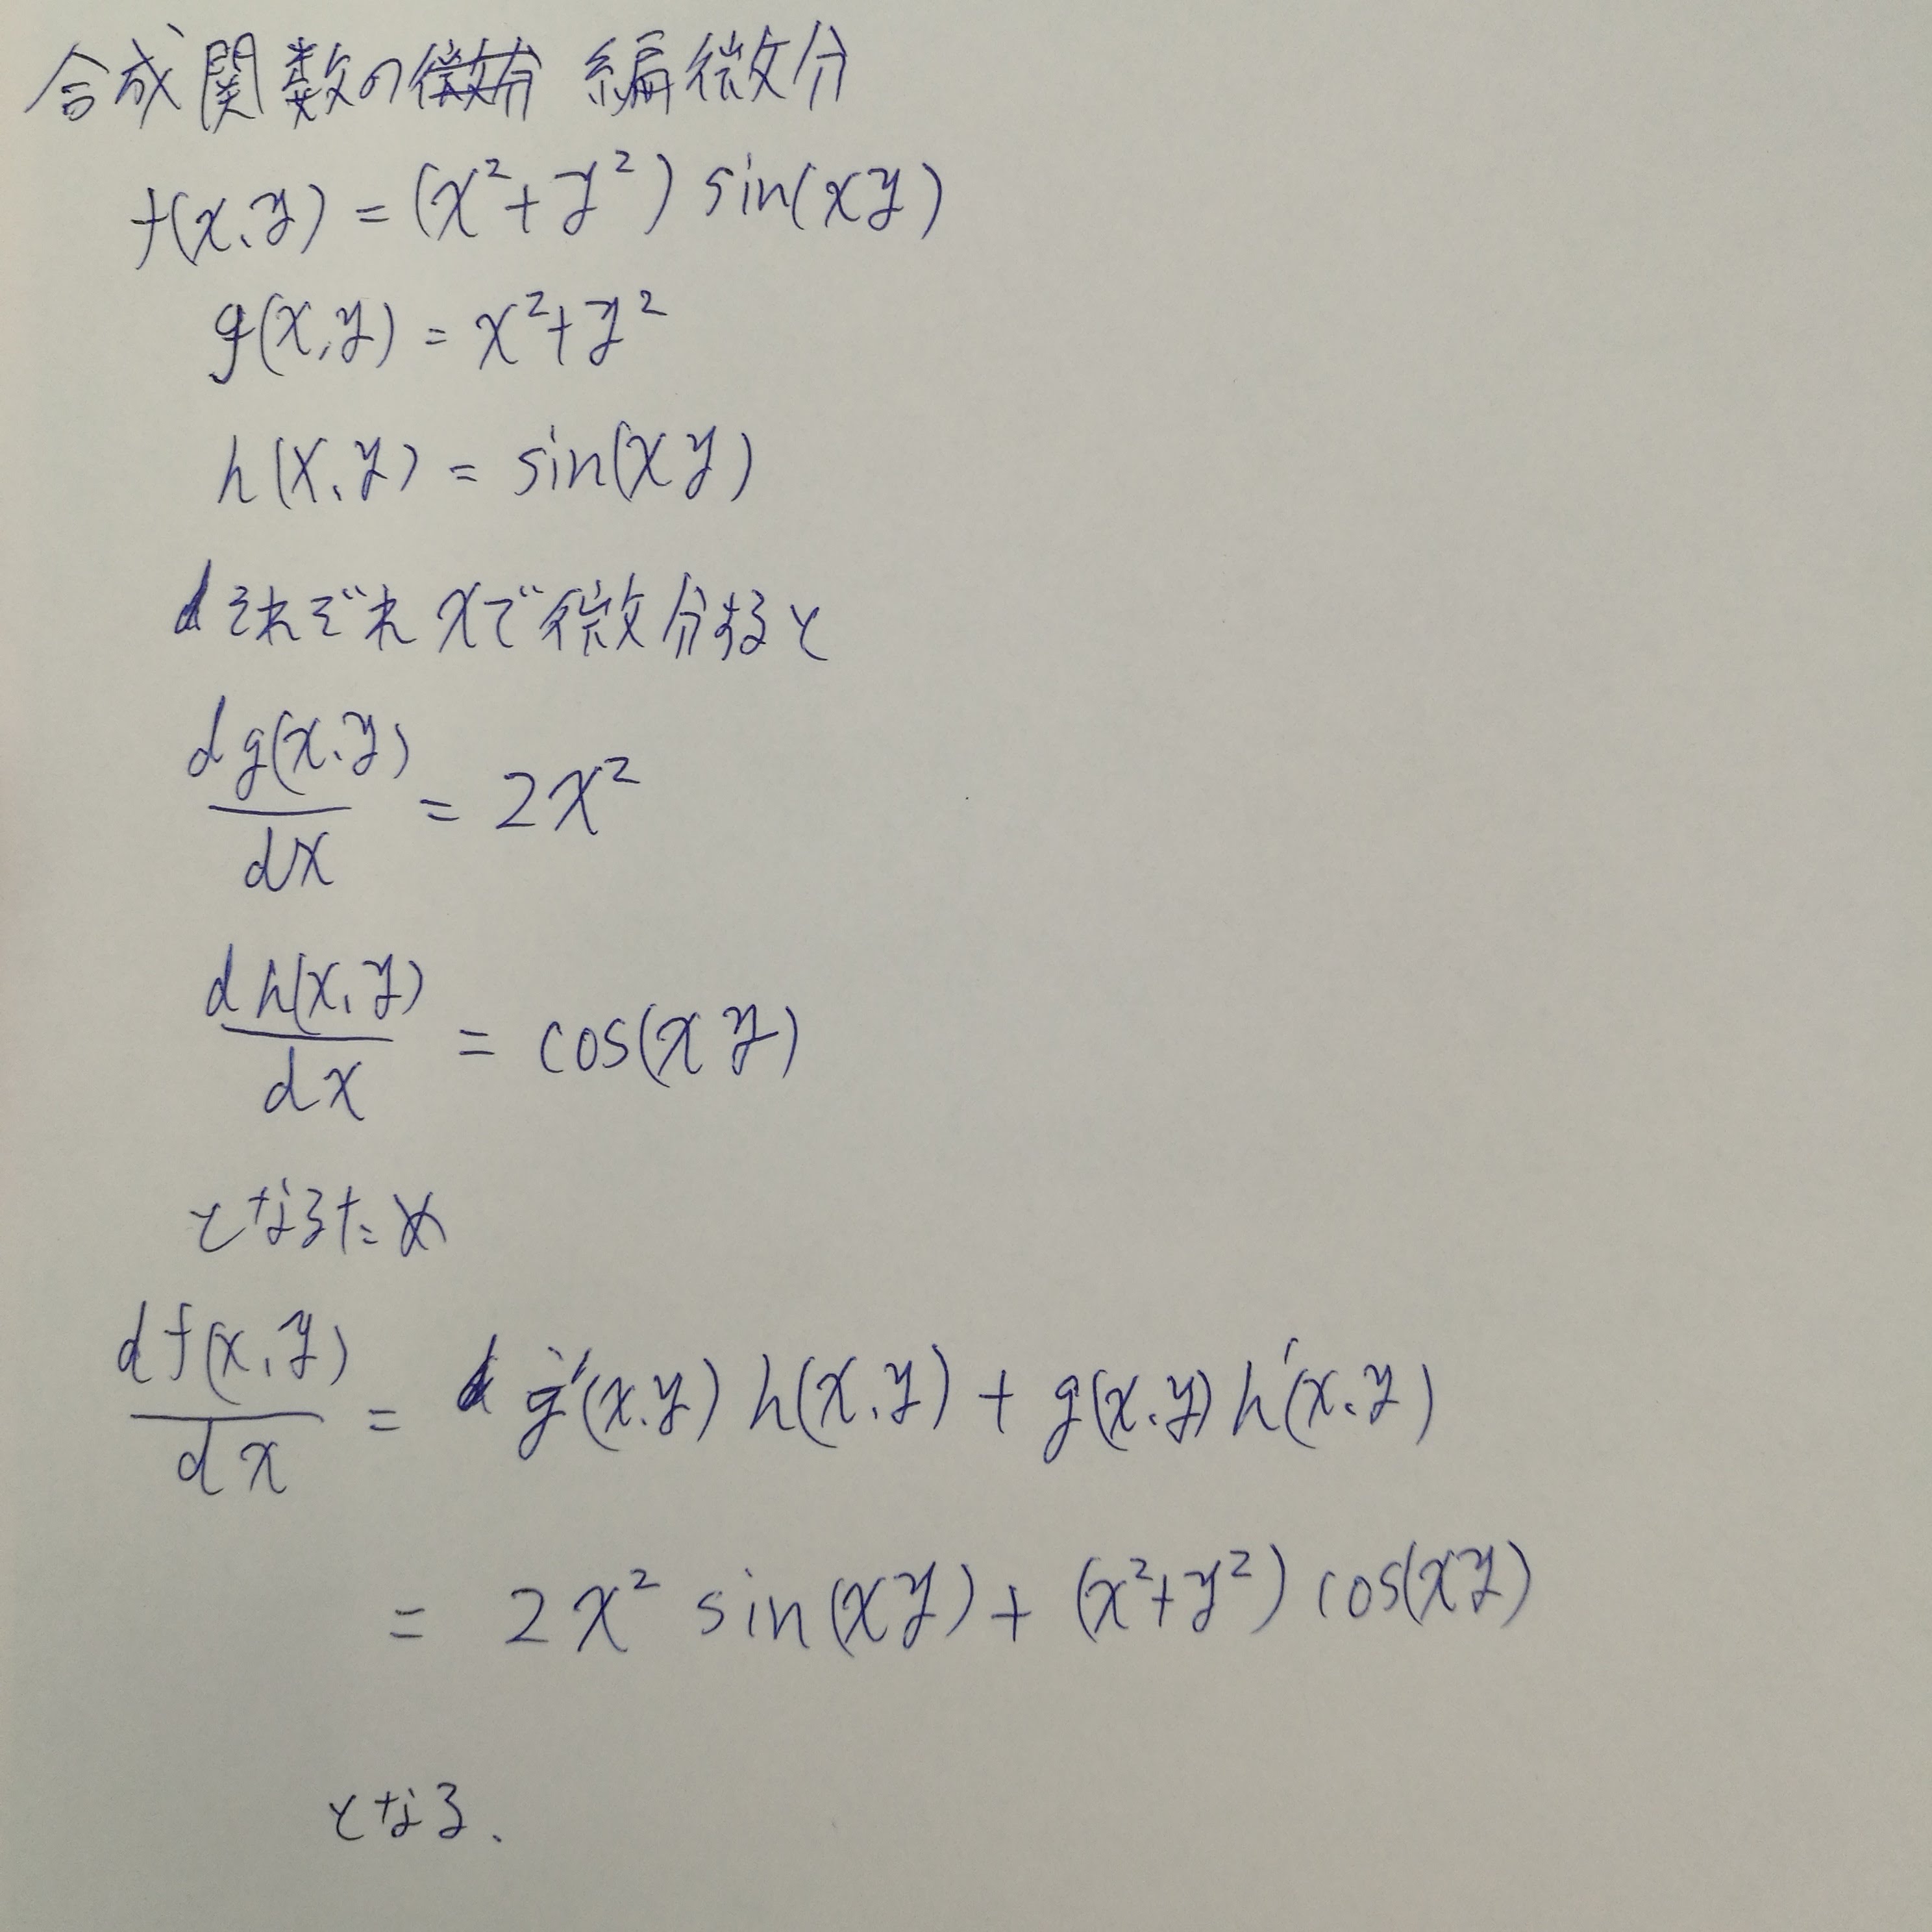 合成関数の微分 編微分
f(x,y) = (x²+y²) sin(xy)
g(x,y) = x²+y²
h(x,y) = sin(xy)
それぞれxで微分すると
dg(x,y)/dx = 2x²
dh(x,y)/dx = cos(xy)
となるため
df(x,y)/dx = g'(x,y) h(x,y) + g(x,y) h'(x,y)
= 2x² sin(xy) + (x²+y²) cos(xy)
となる、